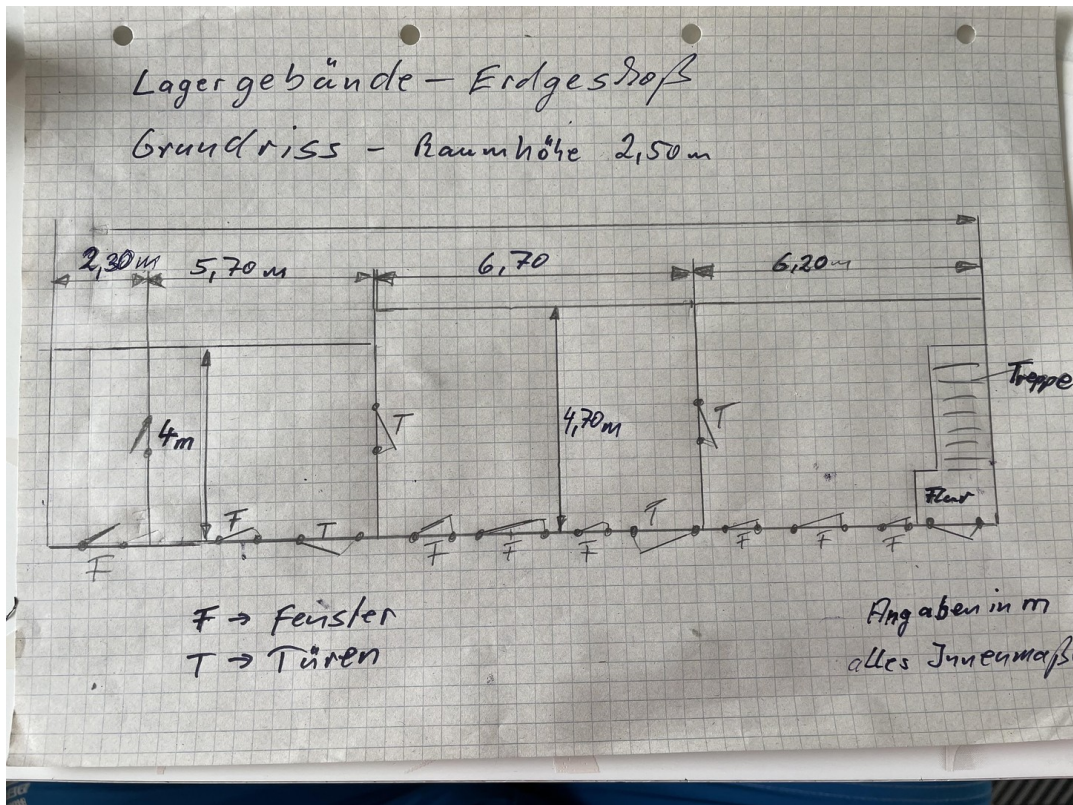 Lagergebäude – Erdgeshoß
Grundriss – Raumhöhe 2,50m
2,30m 5,70m 6,70 6,20m
Treppe
4m T 4,70m T
Flur
F F T F F F T F F F
F → Fenster
T → Türen
Angaben in m
alles Innenmaß